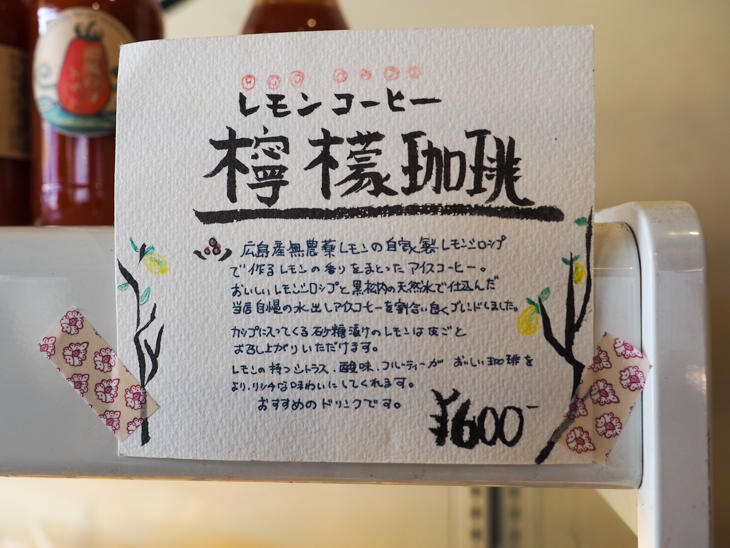 レモンコーヒー
檸檬珈琲
広島産無農薬レモンの自家製レモンシロップ
で作るレモンの香りをまとったアイスコーヒー。
おいしいレモンシロップと黒松内の天然水で仕込んだ
当店自慢の水出しアイスコーヒーを割合い良くブレンドしました。
カップに入ってくる砂糖漬けのレモンは皮ごと
お召し上がりいただけます。
レモンの持つシトラス、酸味、フルーティーが おいしい珈琲を
より、リッチな味わいにしてくれます。
おすすめのドリンクです。
¥600-